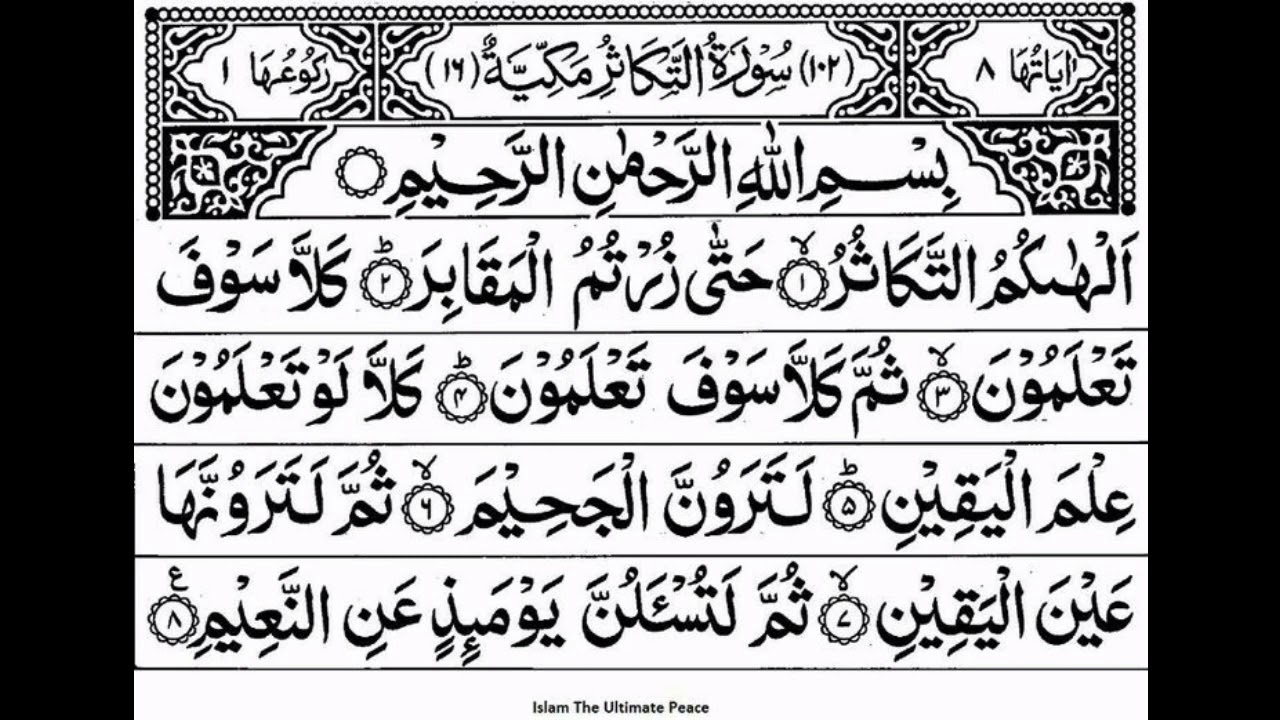 اٰيَاتُهَا ٨ (١٠٢) سُوْرَةُ التَّكَاثُرِ مَكِّيَّةٌ (١٦) رَكُوْعُهَا ١
بِسْمِ اللّٰهِ الرَّحْمٰنِ الرَّحِيْمِ
اَلْهٰىكُمُ التَّكَاثُرُ ۙ﴿١﴾ حَتّٰى زُرْتُمُ الْمَقَابِرَ ؕ﴿٢﴾ كَلَّا سَوْفَ
تَعْلَمُوْنَ ۙ﴿٣﴾ ثُمَّ كَلَّا سَوْفَ تَعْلَمُوْنَ ؕ﴿٤﴾ كَلَّا لَوْ تَعْلَمُوْنَ
عِلْمَ الْيَقِيْنِ ؕ﴿٥﴾ لَتَرَوُنَّ الْجَحِيْمَ ۙ﴿٦﴾ ثُمَّ لَتَرَوُنَّهَا
عَيْنَ الْيَقِيْنِ ۙ﴿٧﴾ ثُمَّ لَتُسْـَٔلُنَّ يَوْمَئِذٍ عَنِ النَّعِيْمِ ﴿٨﴾ ع
Islam The Ultimate Peace